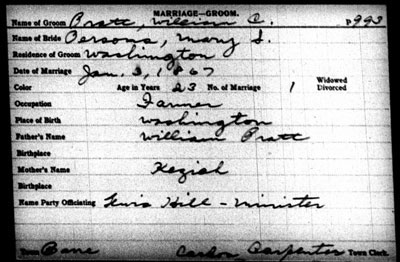 MARRIAGE—GROOM.
Name of Groom Pratt, William C. P993
Name of Bride Persons, Mary S.
Residence of Groom Washington
Date of Marriage Jan. 3, 1867
Color Age in Years 23 No. of Marriage 1 Widowed Divorced
Occupation Farmer
Place of Birth Washington
Father's Name William Pratt
Birthplace
Mother's Name Keziah
Birthplace
Name Party Officiating Hill - Minister
Town Carpenter Town Clerk.